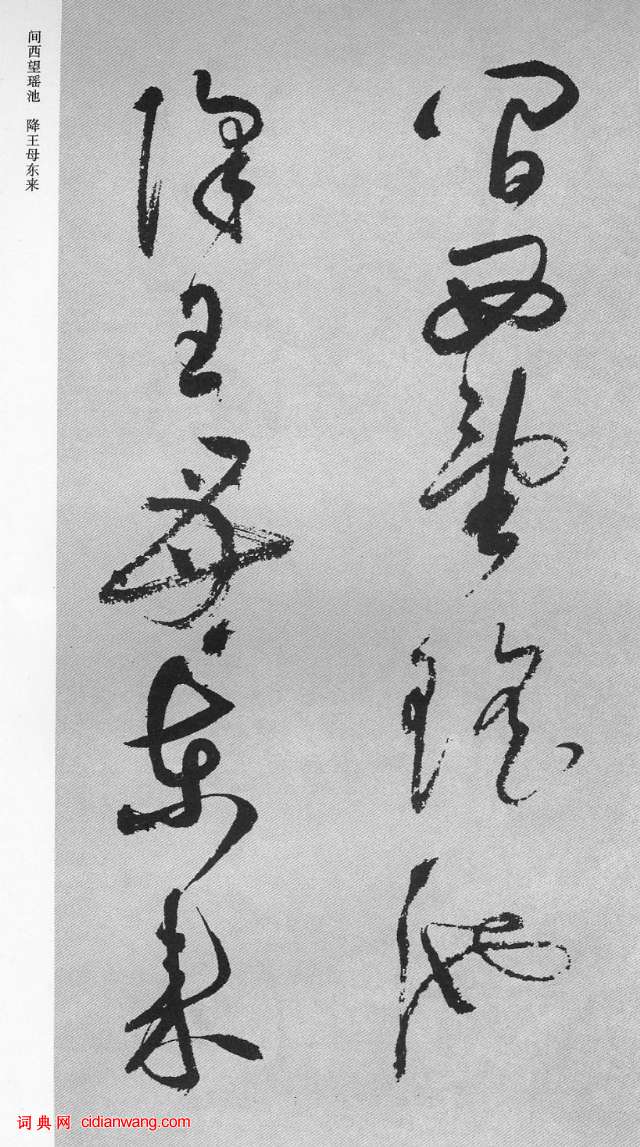 间西望瑶池
降王母东来
间西望瑶池 降王母东来
词典网 cidianwang.com